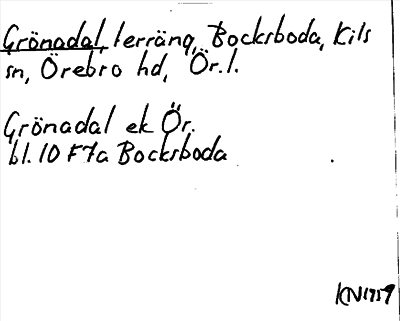 Grönadal, terräng, Bocksboda, Kils
sn, Örebro hd, Ör.l.
Grönadal ek Ör.
bl. 10 F7a Bocksboda
KN1959